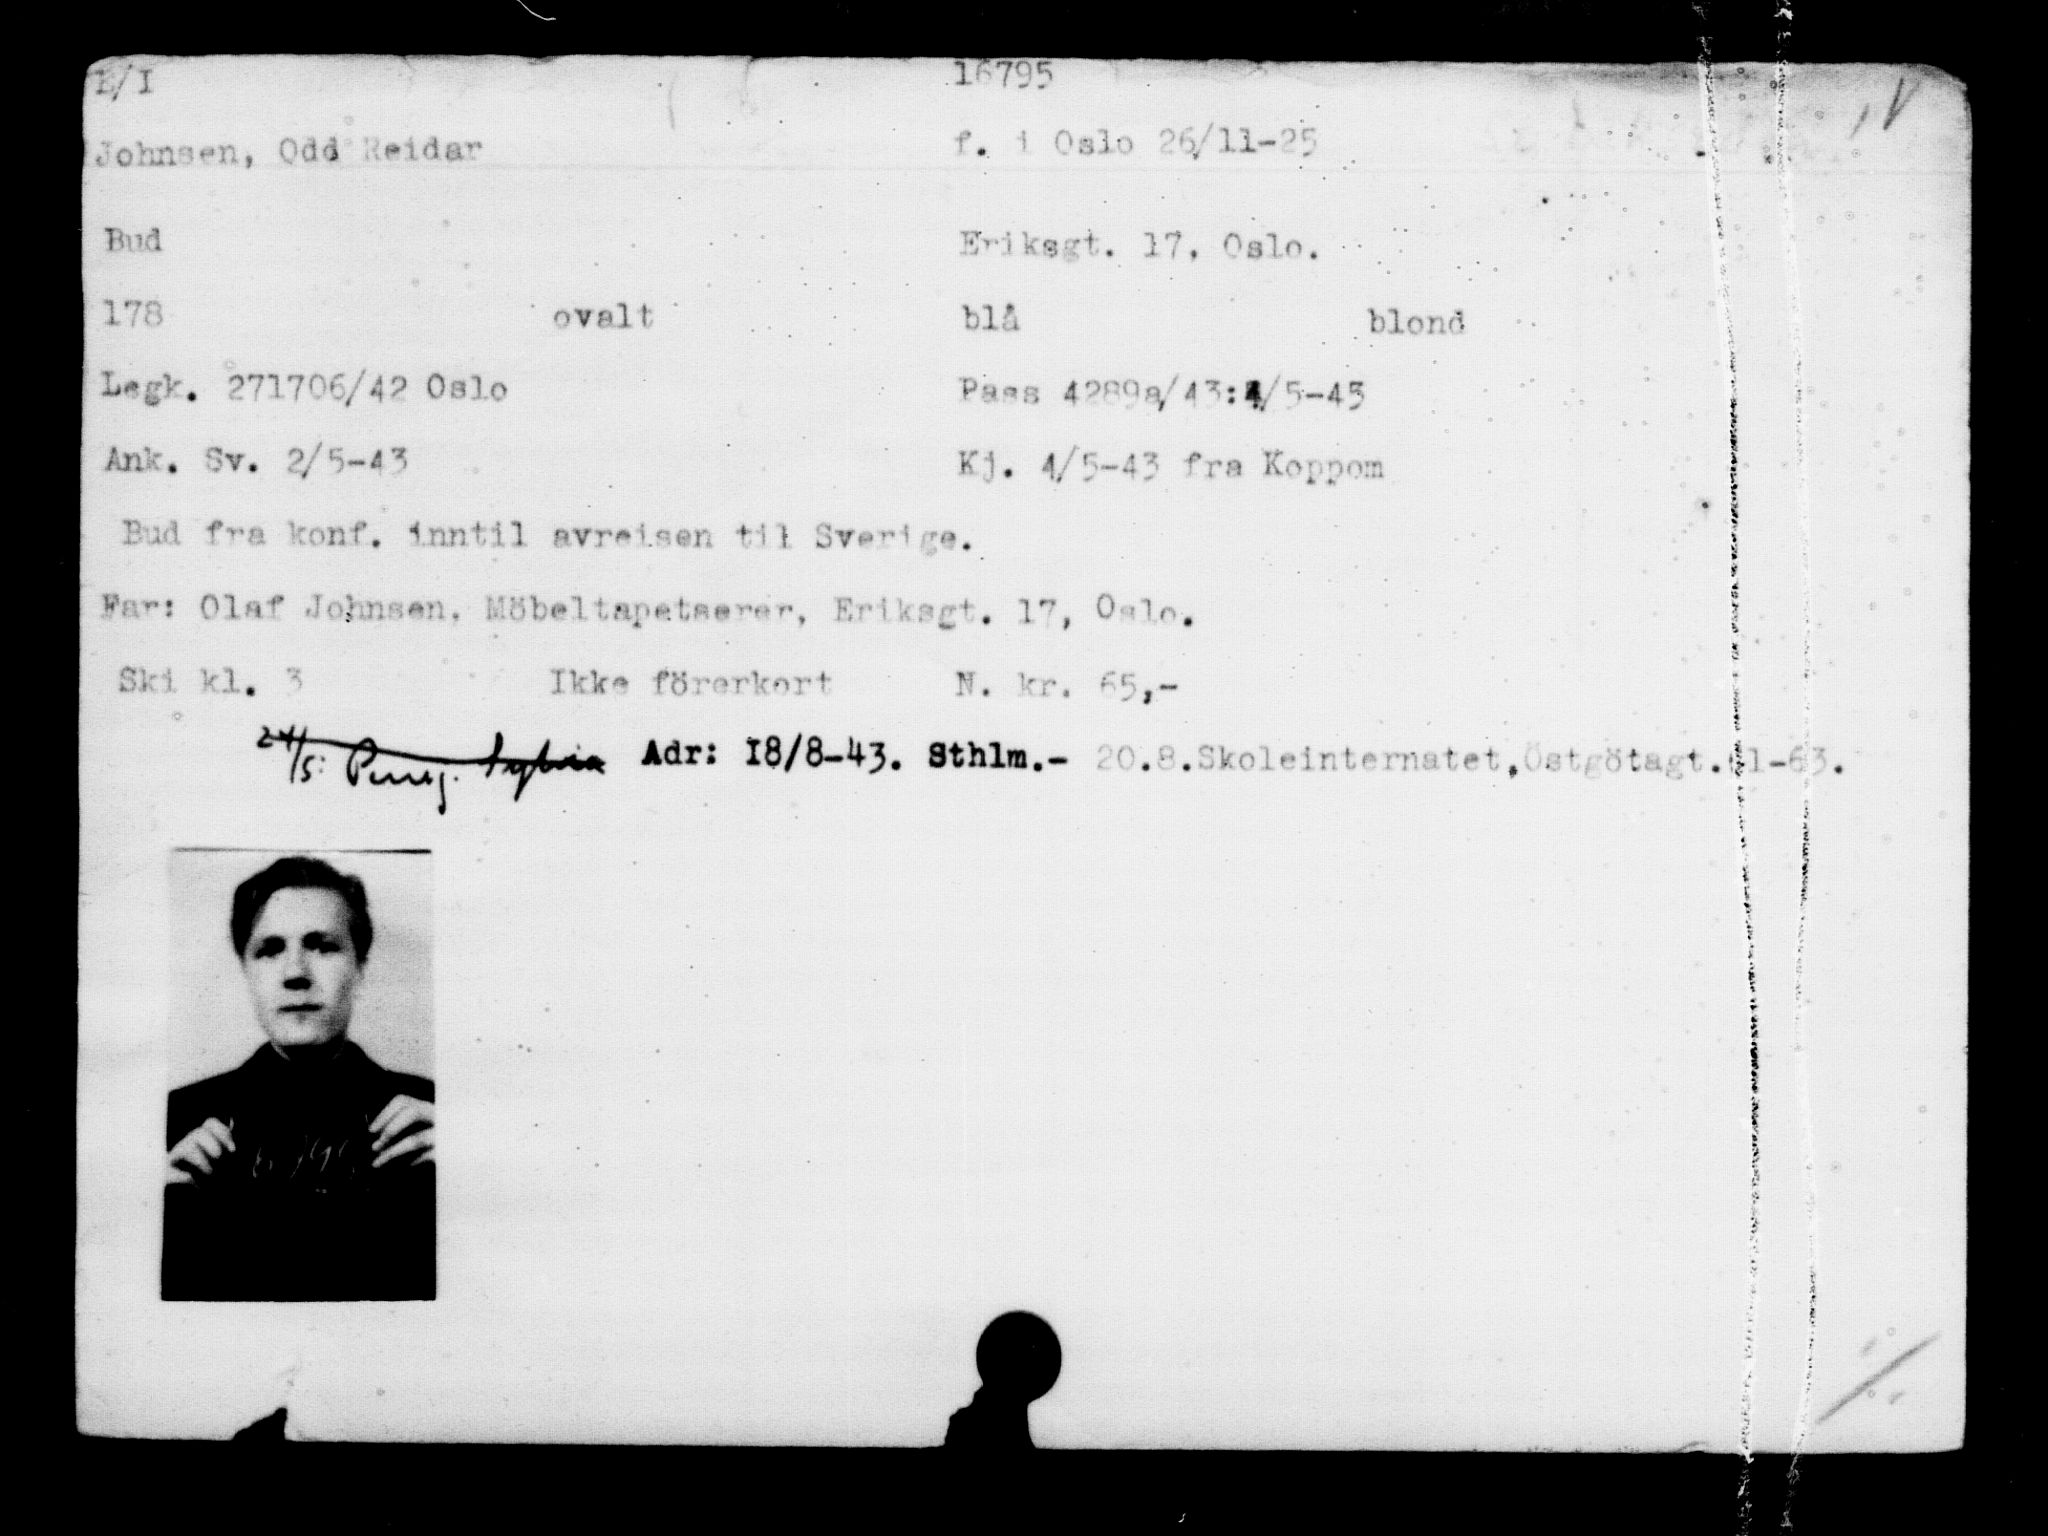 E/I 16795
Johnsen, Odd Reidar f. i Oslo 26/11-25
Bud Eriksgt. 17, Oslo.
178 ovalt blå blond
Legk. 271706/42 Oslo Pass 4289a/43:4/5-43
Ank. Sv. 2/5-43 Kj. 4/5-43 fra Koppom
Bud fra konf. inntil avreisen til Sverige.
Far: Olaf Johnsen, Möbeltapetserer, Eriksgt. 17, Oslo.
Ski kl. 3 Ikke förerkort N. kr. 65,-
24/5: Adr: I8/8-43. Sthlm.- 20.8.Skoleinternatet,Östgötagt.61-63.